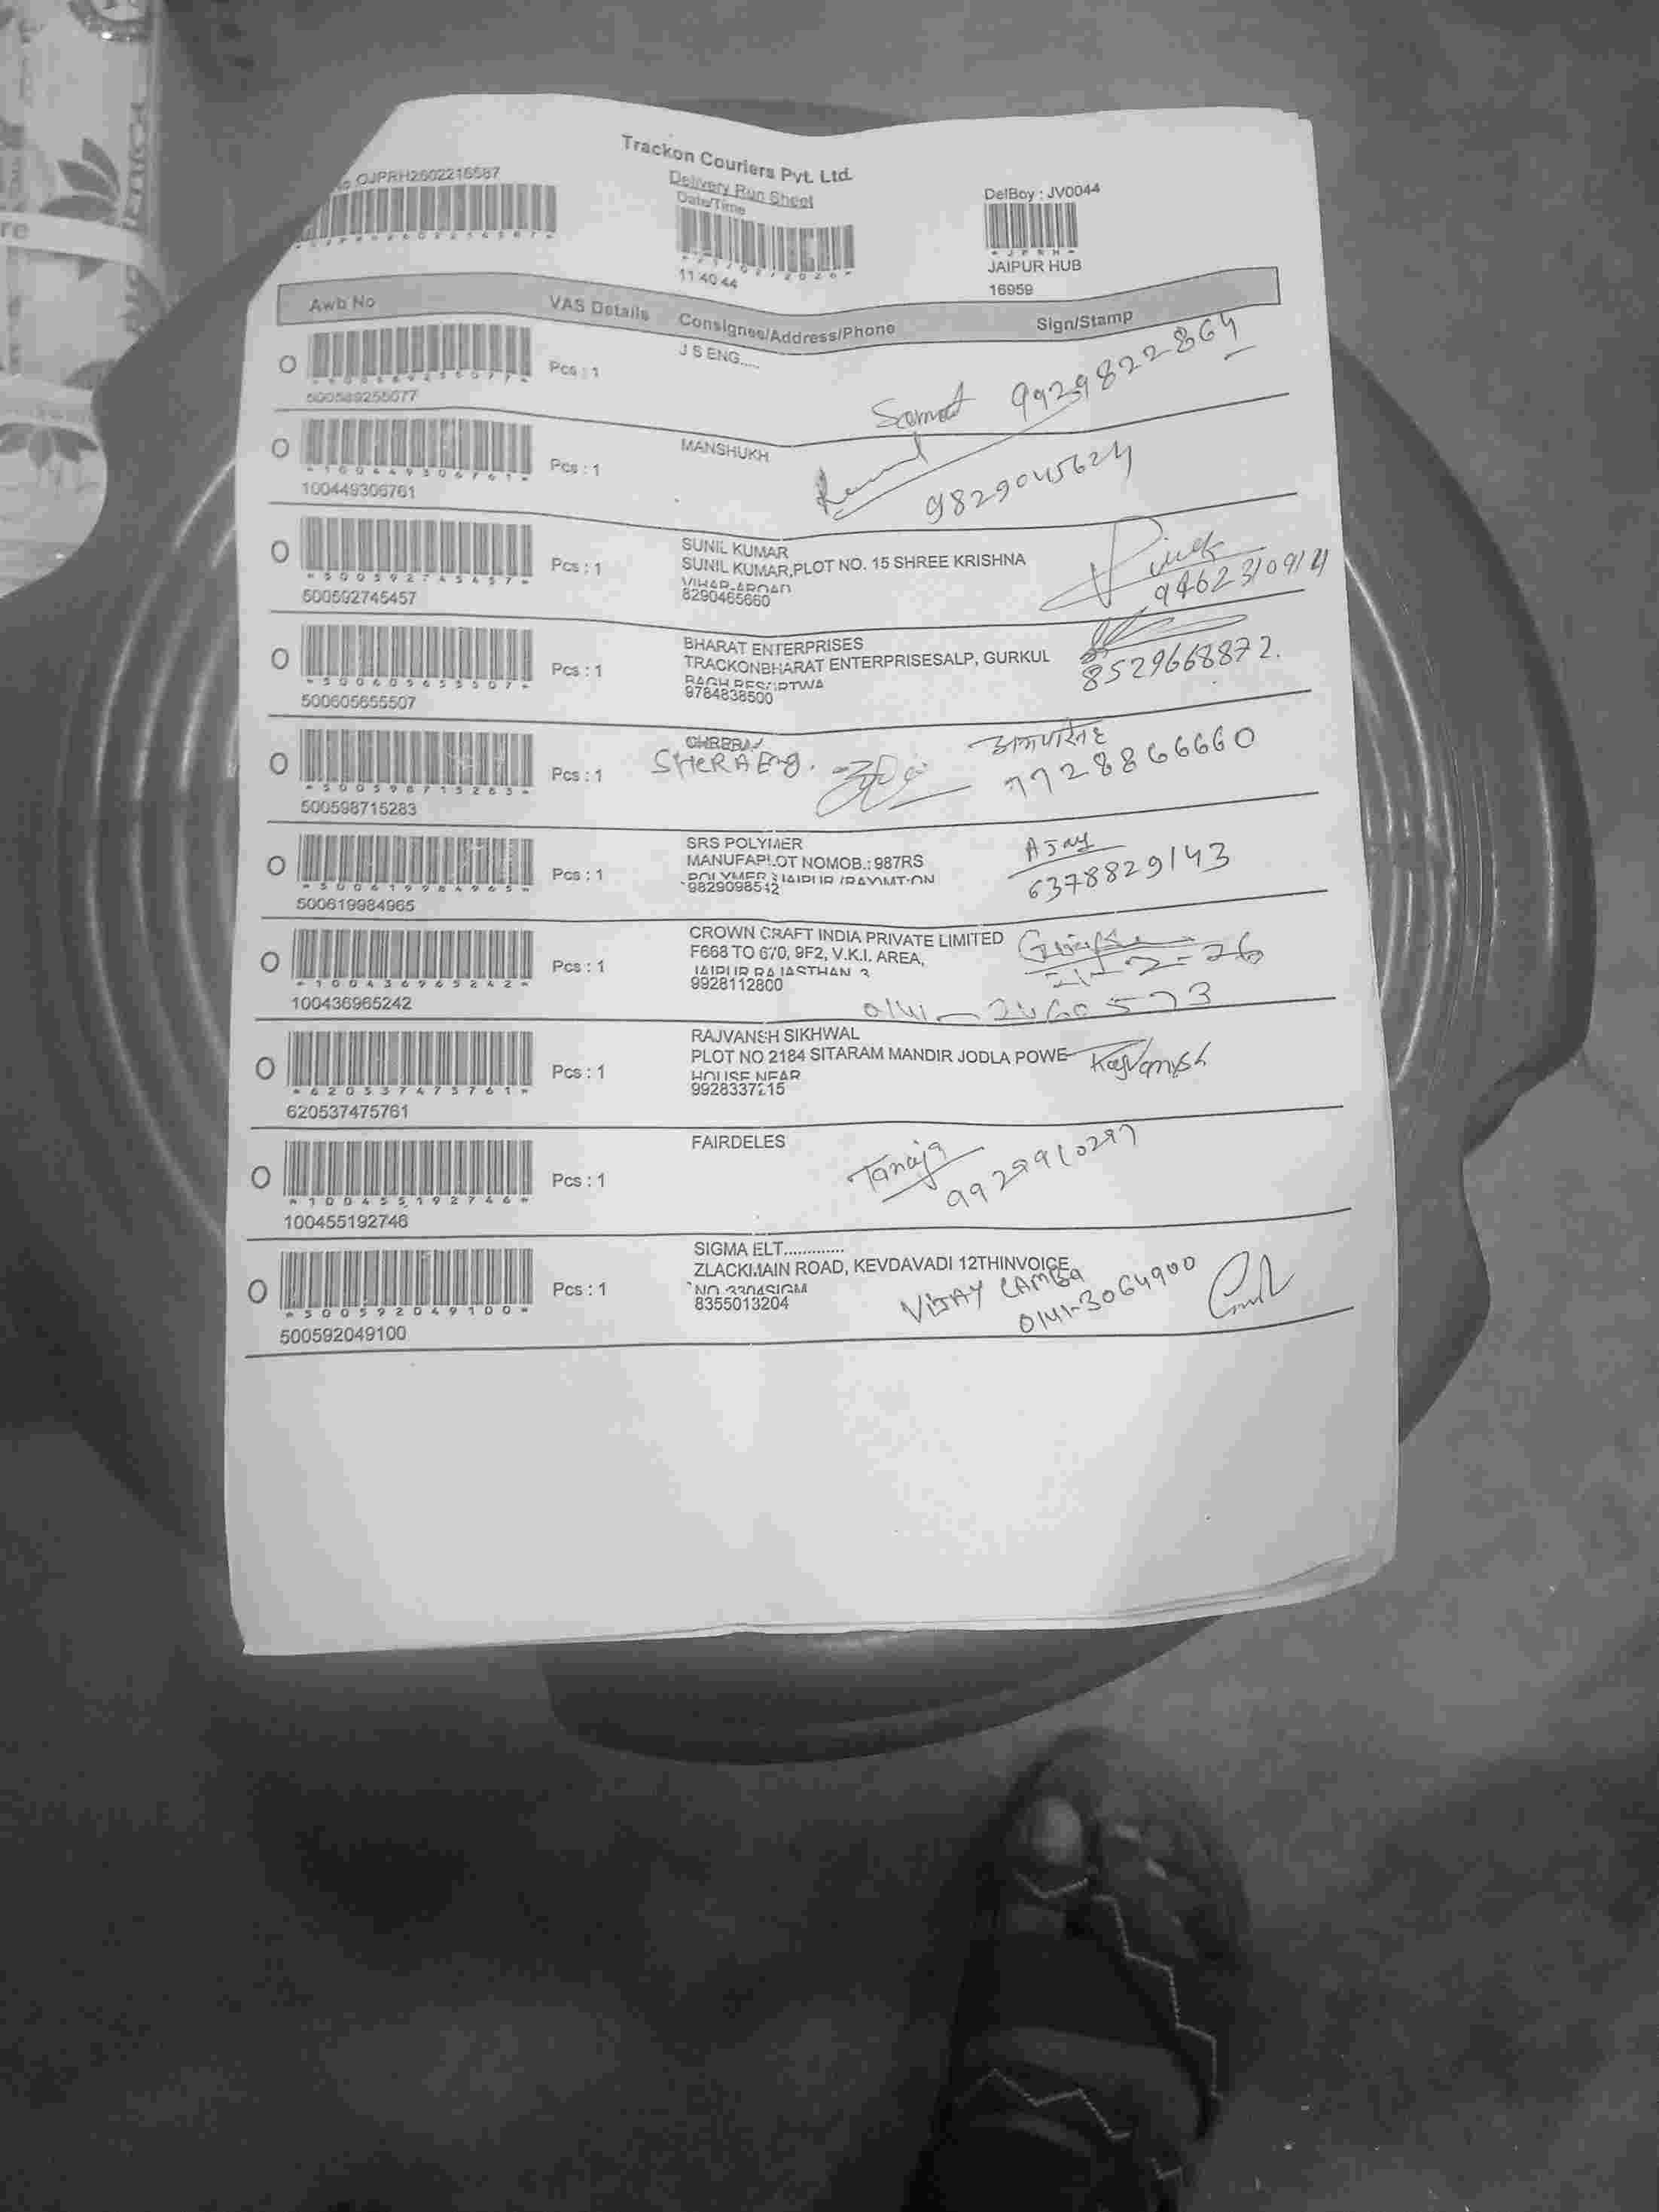 Trackon Couriers Pvt. Ltd.
Delivery Run Sheet
OJPRH2602216587
Date/Time
11:40:44
DelBoy : JV0044
JAIPUR HUB
16959
Awb No VAS Details Consignee/Address/Phone Sign/Stamp
Pcs : 1 J S ENG.....
500589255077
9929822864
Pcs : 1 MANSHUKH
100449306761
9829045624
SUNIL KUMAR
Pcs : 1 SUNIL KUMAR,PLOT NO. 15 SHREE KRISHNA
8290465660
500592745457
9462310914
BHARAT ENTERPRISES
Pcs : 1 TRACKONBHARAT ENTERPRISESALP, GURKUL
9784838500
500605655507
8529668872.
Pcs : 1 SHERA Eng.
7728866660
500598715283
SRS POLYMER
Pcs : 1 MANUFAPLOT NOMOB.: 987RS
9829098542
500619984965
AJAY
6378829143
CROWN CRAFT INDIA PRIVATE LIMITED
Pcs : 1 F668 TO 670, 9F2, V.K.I. AREA,
JAIPUR RAJASTHAN 3
9928112800
100436965242
21-2-26
0141-2460573
RAJVANSH SIKHWAL
Pcs : 1 PLOT NO 2184 SITARAM MANDIR JODLA POWE
HOUSE NEAR
9928337215
620537475761
Rajvansh
FAIRDELES
Pcs : 1
100455192746
9929910297
SIGMA ELT.............
Pcs : 1 ZLACKMAIN ROAD, KEVDAVADI 12THINVOICE
NO 3304SIGM
8355013204
500592049100
VIJAY LAMBA
0141-3064900